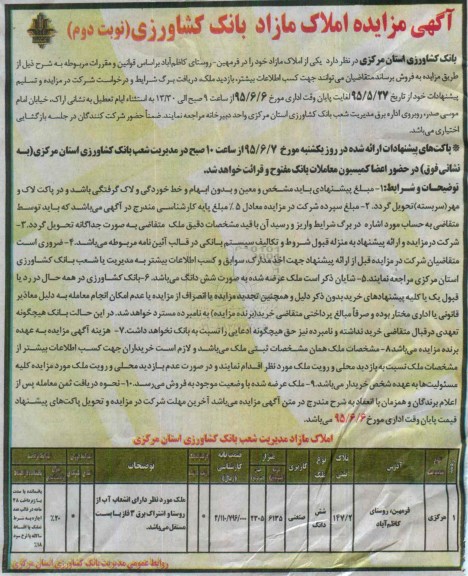 آگهی مزایده املاک مازاد بانک کشاورزی (نوبت دوم)
بانک کشاورزی استان مرکزی در نظر دارد یکی از املاک مازاد خود را در فرمهین-روستای کاظم‌آباد براساس قوانین و مقررات مربوطه به شرح ذیل از
طریق مزایده به فروش برساند متقاضیان می‌توانند جهت کسب اطلاعات بیشتر، بازدید ملک، دریافت برگ شرایط و درخواست شرکت در مزایده و تسلیم
پیشنهادات خود از تاریخ ۹۵/۵/۲۷ لغایت پایان وقت اداری مورخ ۹۵/۶/۶ از ساعت ۹ صبح الی ۱۳/۳۰ به استثناء ایام تعطیل به نشانی اراک، خیابان امام
موسی صدر، روبروی اداره برق مدیریت شعب بانک کشاورزی استان مرکزی واحد دبیرخانه مراجعه نمایند. ضمناً حضور شرکت کنندگان در جلسه بازگشایی
اختیاری می‌باشد.
* پاکت‌های پیشنهادات ارائه شده در روز یکشنبه مورخ ۹۵/۶/۷ از ساعت ۱۰ صبح در مدیریت شعب بانک کشاورزی استان مرکزی (به
نشانی فوق) در حضور اعضا کمیسیون معاملات بانک مفتوح و قرائت خواهد شد.
توضیحات و شرایط: ۱- مبلغ پیشنهادی باید مشخص و معین و بدون ابهام و خط خوردگی و لاک گرفتگی باشد و در پاکت لاک و
مهر (سربسته) تحویل گردد. ۲- مبلغ سپرده شرکت در مزایده معادل ۵٪ مبلغ پایه کارشناسی مندرج در آگهی می‌باشد که باید توسط
متقاضی به حساب مورد اشاره در برگ شرایط واریز و رسید آن با قید مشخصات دقیق ملک متقاضی به صورت جداگانه تحویل گردد. ۳-
شرکت در مزایده و ارائه پیشنهاد به منزله قبول شروط و تکالیف سیستم بانکی در قالب آئین نامه مربوطه می‌باشد. ۴- ضروری است
متقاضیان شرکت در مزایده قبل از ارائه پیشنهاد جهت اخذ مدارک، سوابق و کسب اطلاعات بیشتر به مدیریت یا شعب بانک کشاورزی
استان مرکزی مراجعه نمایند. ۵- شایان ذکر است ملک عرضه شده به صورت شش دانگ می‌باشد. ۶- بانک کشاورزی در همه حال در رد یا
قبول یک یا کلیه پیشنهادهای خرید بدون ذکر دلیل و همچنین تجدید مزایده یا انصراف از مزایده یا عدم امکان انجام معامله به دلیل معاذیر
قانونی یا اداری مختار بوده و صرفاً مبالغ پرداختی متقاضی خرید (برنده مزایده) به نامبرده مسترد خواهد شد. در این حالت بانک هیچگونه
تعهدی در قبال متقاضی خرید نداشته و نامبرده نیز حق هیچگونه ادعایی را نسبت به بانک نخواهد داشت. ۷- هزینه آگهی مزایده به عهده
برنده مزایده می‌باشد ۸- مشخصات ملک همان مشخصات ثبتی ملک می‌باشد و لازم است خریداران جهت کسب اطلاعات بیشتر از
مشخصات ملک نسبت به بازدید محلی و رویت ملک مورد نظر اقدام نمایند و در صورت عدم بازدید محلی و رویت ملک مورد مزایده کلیه
مسئولیت‌ها به عهده شخص خریدار می‌باشد. ۹- ملک عرضه شده با وضعیت موجود به فروش می‌رسد. ۱۰- نحوه دریافت ثمن معامله پس از
اعلام برندگان و همزمان با انعقاد به شرح مندرج در متن آگهی مزایده می‌باشد آخرین مهلت شرکت در مزایده و تحویل پاکت‌های پیشنهاد
قیمت پایان وقت اداری مورخ ۹۵/۶/۶ می‌باشد.
املاک مازاد مدیریت شعب بانک کشاورزی استان مرکزی
آدرس پلاک ثبتی نوع ملک کاربری قیمت پایه کارشناسی (ریال) توضیحات
۱ مرکزی فرمهین، روستای کاظم‌آباد ۱۴۷/۲ شش دانگ صنعتی ۶۱۳۵ ۲۳۰۵ ۴/۱۱۰/۷۹۶/۰۰۰ * ملک مورد نظر دارای انشعاب آب از روستا و اشتراک برق ۳ فاز بنا پست مستقل می‌باشد. * ۲۰٪
روابط عمومی مدیریت بانک کشاورزی استان مرکزی